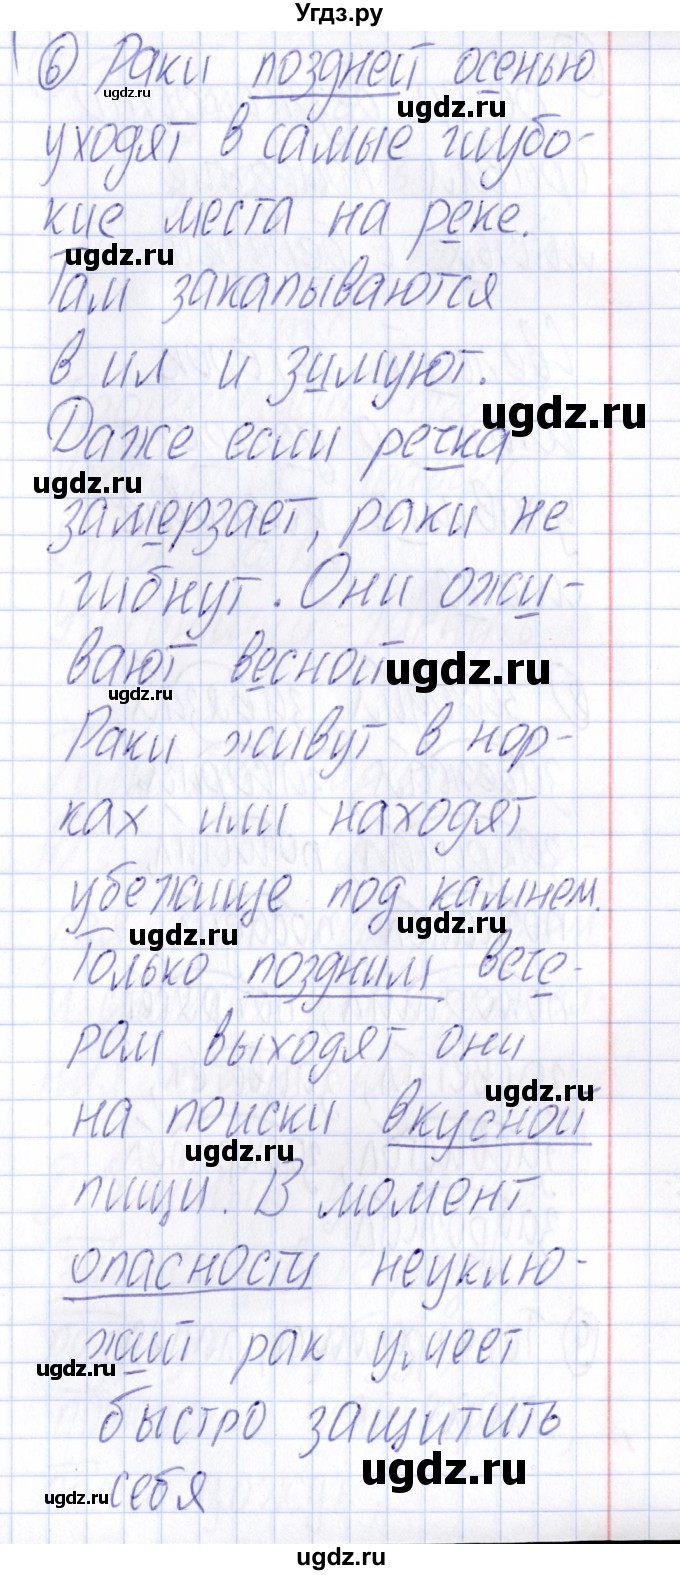 Угдз.ру
⑥ Раки поздней осенью
ugdz.ru
ugdz.ru
уходят в самые глубо-
кие места на реке.
ugdz.ru
Там закапываются
в ил и зимуют.
ugdz.ru
Даже если речка
ugdz.ru
замерзает, раки не
гибнут. Они ожи-
вают весной
ugdz.ru
ugdz.ru
Раки живут в нор-
ках или находят
убежище под камнем.
ugdz.ru
ugdz.ru
Только поздним вече-
ром выходят они
ugdz.ru
на поиски вкусной
ugdz.ru
пищи. В момент
опасности неуклю-
жий рак умеет
ugdz.ru
быстро защитить
ugdz.ru
ugdz.ru
себя
ugdz.ru